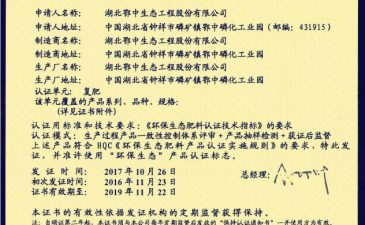 申请人名称：湖北鄂中生态工程股份有限公司
申请人地址：中国湖北省钟祥市磷矿镇鄂中磷化工业园（邮编：431915）
制造商名称：湖北鄂中生态工程股份有限公司
制造商地址：中国湖北省钟祥市磷矿镇鄂中磷化工业园
生产厂名称：湖北鄂中生态工程股份有限公司
生产厂地址：中国湖北省钟祥市磷矿镇鄂中磷化工业园
认证单元：复肥
该单元覆盖的产品系列、品种、规格：
（详见证书附件）
认证用标准和技术要求：《环保生态肥料认证技术指标》的要求
认证模式：生产过程产品一致性控制体系评审＋产品抽样检测＋获证后监督
上述产品符合HQC《环保生态肥料产品认证实施规则》的要求，特此发
证，并准许使用“环保生态”产品认证标志。
发证时间：2017年10月26日
总经理：
初次发证时间：2016年11月23日
证书有效期：2019年11月22日
本证书的有效性依据发证机构的定期监督获得保持。